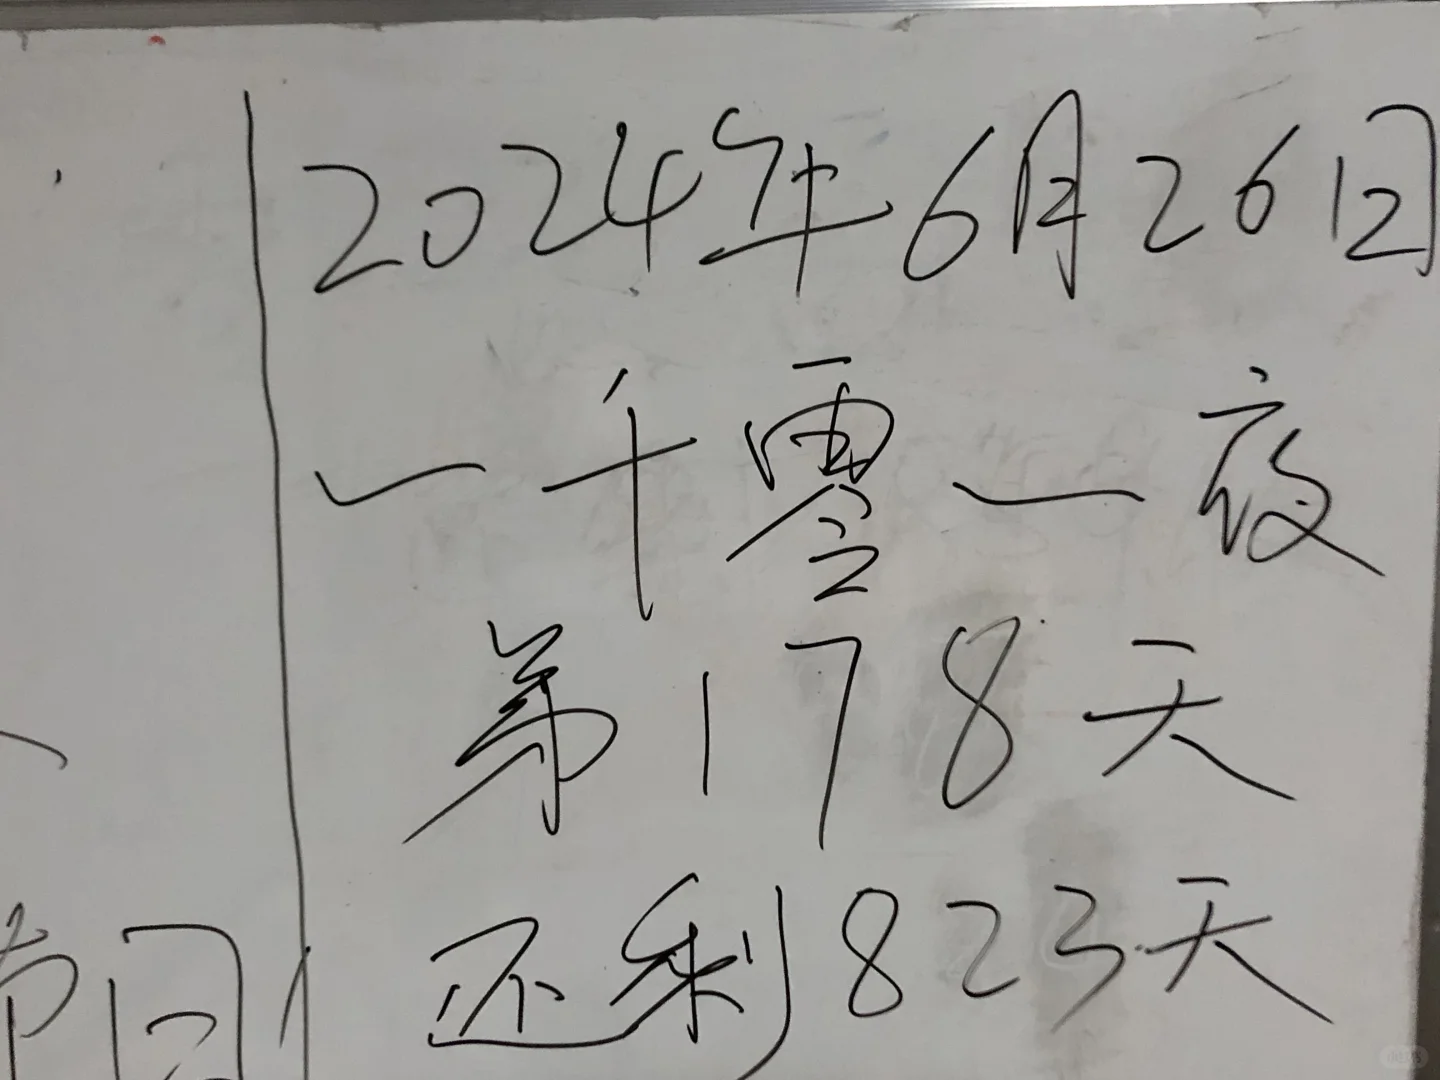 2024年6月26日
一千零一夜
第178天
还剩823天